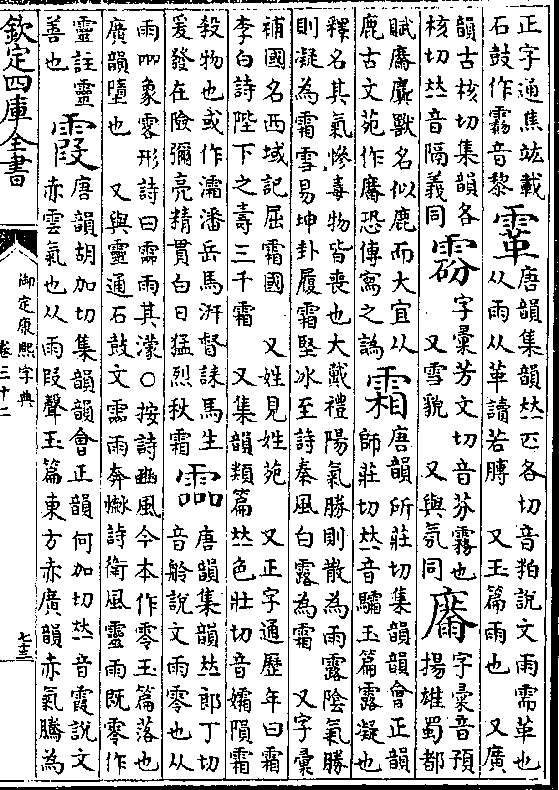 正字通焦竑載
石鼓作霧音黎
䨣
唐韻集韻𠀤匹各切音粕說文雨濡革也
从雨从革讀若膊 又玉篇雨也 又廣
韻古核切集韻各
核切𠀤音隔義同
雰
字彙芳文切音芬霧也
又雪貌 又與氛同
字彙音預
揚雄蜀都
賦麢獸名似鹿而大宜以
鹿古文苑作麢恐傳寫之譌
霜
唐韻所莊切集韻韻會正韻
師莊切𠀤音驦玉篇露凝也
釋名其氣慘毒物皆喪也大戴禮陽氣勝則散為雨露陰氣勝
則凝為霜雪易坤卦履霜堅冰至詩秦風白露為霜 又字彙
補國名西域記屈霜國 又姓見姓苑 又正字通歷年曰霜
李白詩陛下之壽三千霜 又集韻類篇𠀤色壯切音孀隕霜
殺物也或作灀潘岳馬汧督誄馬生
爰發在險彌亮精貫白日猛烈秋霜
霝
唐韻集韻𠀤郎丁切
音舲說文雨零也从
雨㗊象零形詩曰霝雨其濛○按詩豳風今本作零玉篇落也
廣韻墮也 又與靈通石鼓文霝雨奔㵗詩衛風靈雨既零作
靈註靈
善也
霞
唐韻胡加切集韻韻會正韻何加切𠀤音遐說文
赤雲氣也从雨叚聲玉篇東方赤廣韻赤氣騰為
欽定四庫全書
御定康熙字典
卷三十二
七三